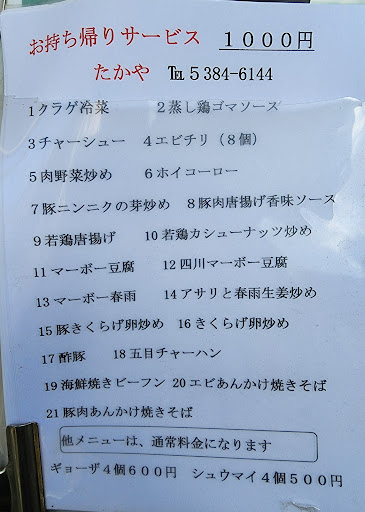 お持ち帰りサービス 1000円
たかや ℡5384-6144
1クラゲ冷菜 2蒸し鶏ゴマソース
3チャーシュー 4エビチリ(8個)
5肉野菜炒め 6ホイコーロー
7豚ニンニクの芽炒め 8豚肉唐揚げ香味ソース
9若鶏唐揚げ 10若鶏カシューナッツ炒め
11マーボー豆腐 12四川マーボー豆腐
13マーボー春雨 14アサリと春雨生姜炒め
15豚きくらげ卵炒め 16きくらげ卵炒め
17酢豚 18五目チャーハン
19海鮮焼きビーフン 20エビあんかけ焼きそば
21豚肉あんかけ焼きそば
他メニューは、通常料金になります
ギョーザ4個600円 シュウマイ4個500円